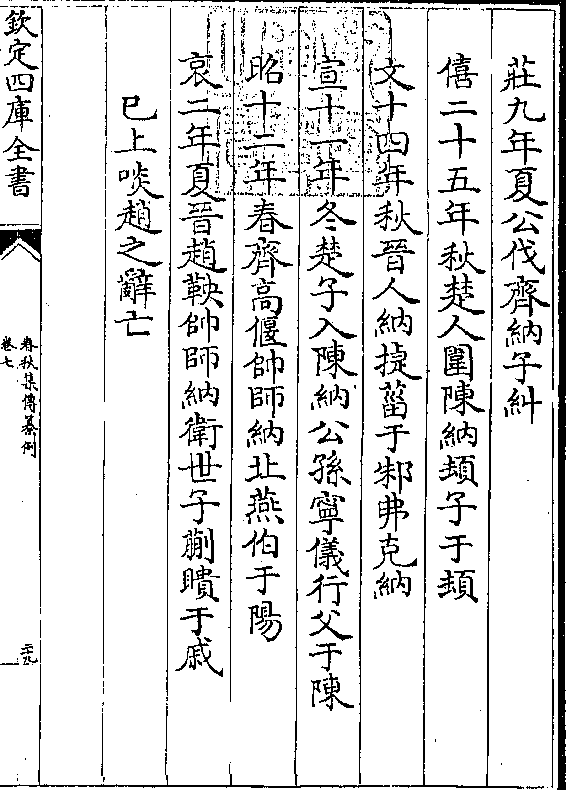 莊九年夏公伐齊納子糾
僖二十五年秋楚人圍陳納頓子于頓
文十四年秋晉人納捷菑于邾弗克納
宣十一年冬楚子入陳納公孫寧儀行父于陳
昭十二年春齊高偃帥師納北燕伯于陽
哀二年夏晉趙鞅帥師納衛世子蒯聵于戚
已上啖趙之辭亡
欽定四庫全書
春秋集傳纂例
卷七
二十九